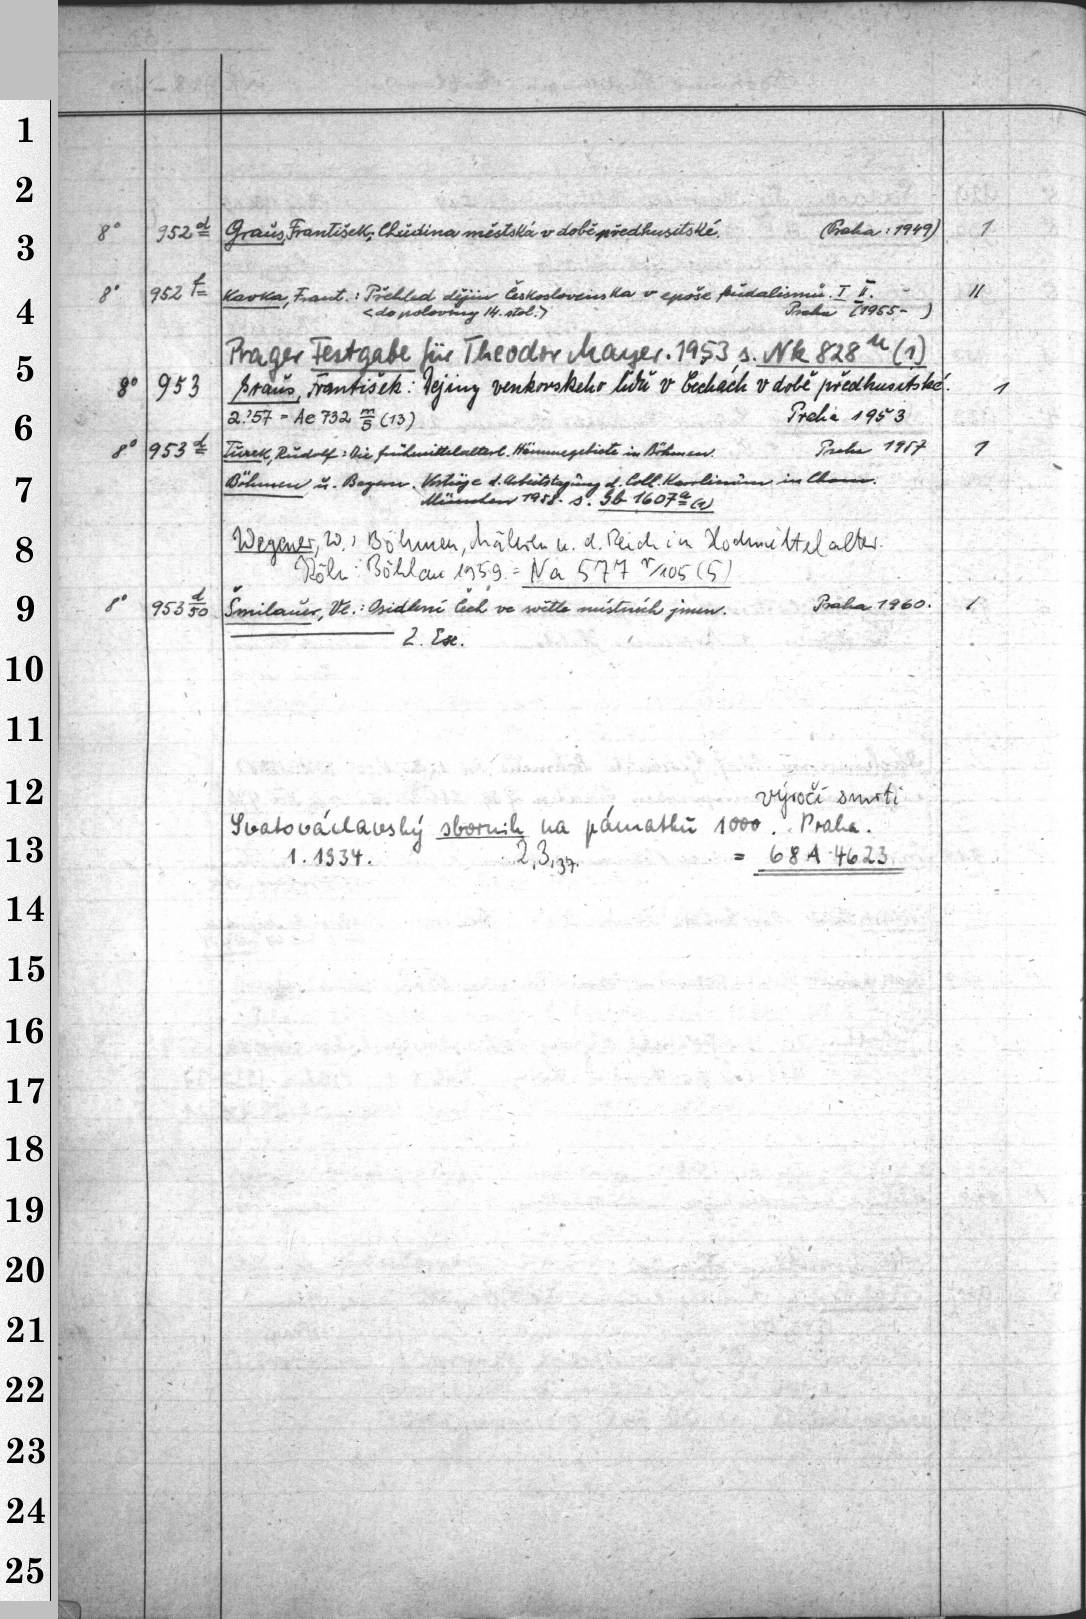 1
2
3
8° 952 d Graus, František, Chudina městská v době předhusitské. (Praha: 1949) 1
4
8° 952 f Kavka, Frant.: Přehled dějin Československa v epoše feudalismu. I II. II
<do poloviny 14. stol.> Praha (1955- )
5
Prager Festgabe für Theodor Mayer. 1953 s. Nk 828 u (1)
8° 953 Graus, František: Dejiny venkovskeho lidu v Čechách v době předhusitské. 1
6
2.° 57 = Ae 732 m/5 (13) Praha 1953
8° 953 d Turek, Rudolf: Die frühmittelalterl. Stämmegebiete in Böhmen. Praha 1957 1
7
Böhmen u. Bayern. Vorträge d. Arbeitstagung d. Coll. Karolinum in Cham.
München 1958. s. Gb 1607 a (1)
8
Wegener, W.: Böhmen, Mähren u. d. Reich in Hochmittelalter.
Köln: Böhlau 1959. = Na 577 r/105 (5)
9
8° 953 d/50 Šmilauer, Vl.: Osídlení Čech ve světle místních jmen. Praha 1960. 1
2. Ex.
10
11
12
výročí smrti
Svatováclavský sbornik na památku 1000. Praha.
13
1. 1934. 2,3,37. = 68 A 4623
14
15
16
17
18
19
20
21
22
23
24
25